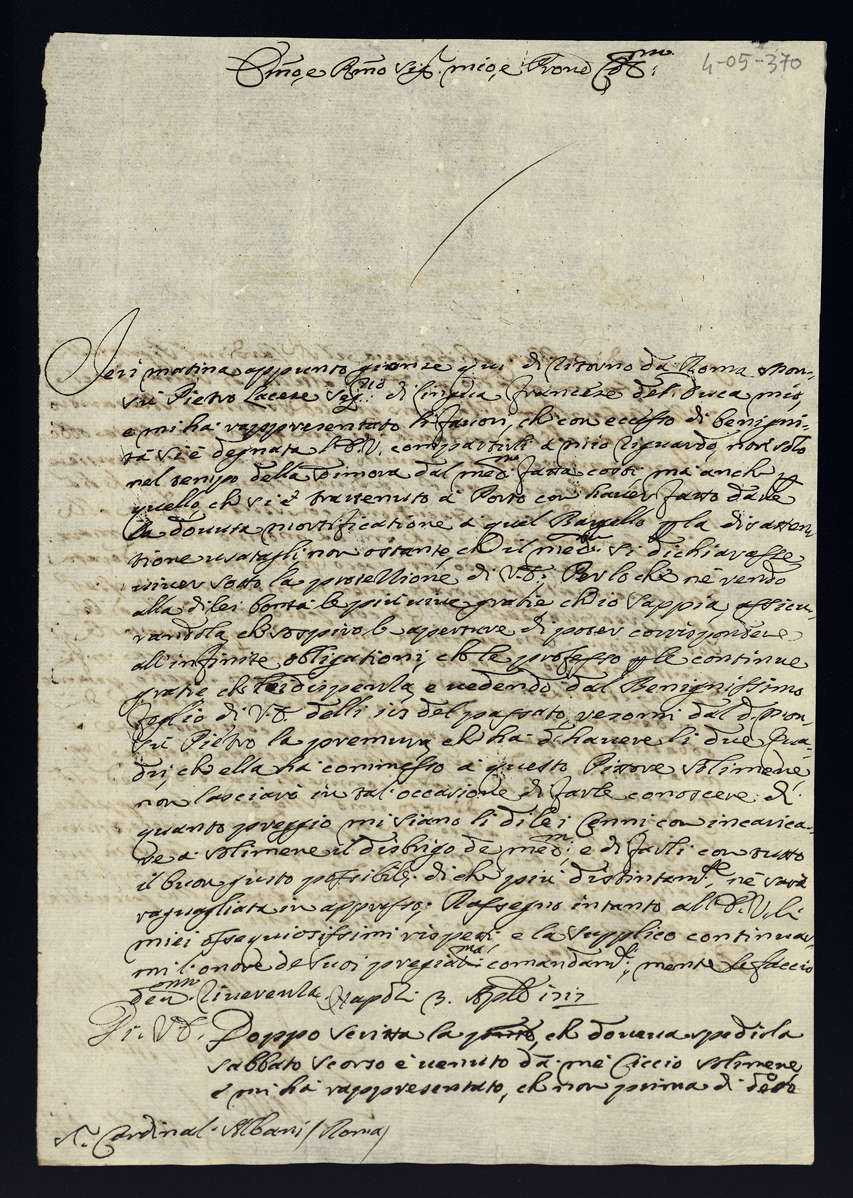 Em̃o, e Rm̃o Sig.r mio, e Prone Col.mo
4-05-370
Jeri matina appunto gionse quì di ritorno da Roma Mon-
sù Pietro Lacese Seg.rio di lingua francese del Duca mio,
e mi hà rappresentato li favori, che con eccesso di benigni-
tà si è degnata V.E. compartirli à mio riguardo, non solo
nel tempo della dimora dal med.mo fatta costì mà anch p
quello, che si è trattenuto à Porto con haver fatto dare
la dovuta mortificatione à quel Bargello p la disatten-
tione usatagli non ostante, ch il med.mo si dichiarasse
viver sotto la protettione di V.E.; Per lo che nè rendo
alla di lei bontà le più vive gratie ch io sappia, assicu-
randola, che sospiro le aperture di poter corrispondere
all'infinite obligationi, che le professo p le continue
gratie che mi dispenza, e vedendo dal Benignissimo
foglio di V.E. delli 20 del passato, resomi dal d. Mon-
sù Pietro la premura, ch hà d'havere li due qua-
dri, ch ella hà commesso à questo Pittore Solimene,
non lasciarò in tal'occasione di farle conoscere di
quanto preggio mi siano li di lei cenni con incarica-
re à Solimene il disbrigo de med.mi, e di farli con tutto
il buon gusto possibile, di ch più distintam.te nè sarà
raguagliata in appresso. Rassegno intanto all'E.V. li
miei ossequiosissimi rispetti, e la supplico continuar-
mi l'onore de suoi pregiat.mi comandam.ti, mentre le faccio
dev.ma riverenza. Napoli 3. Aple 1717
Di V.E. Doppo scritta la pnte, che doveva spedirla
Sabbato scorso è venuto da mè Ciccio Solimene,
è mi hà rappresentato, ch non prima di detto
S.r Cardinal Albani / Roma /